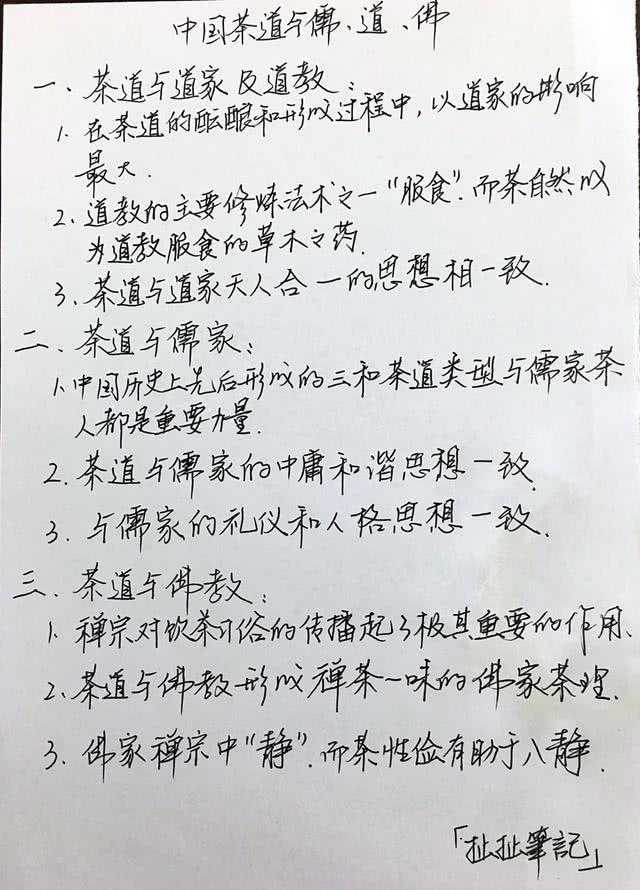 中国茶道与儒、道、佛
一、茶道与道家及道教：
1. 在茶道的酝酿和形成过程中，以道家的影响
最大.
2. 道教的主要修炼法术之一“服食”.而茶自然成
为道教服食的草木之药.
3. 茶道与道家天人合一的思想相一致.
二、茶道与儒家：
1.中国历史上先后形成的三和茶道类型与儒家茶
人都是重要力量.
2. 茶道与儒家的中庸和谐思想一致.
3. 与儒家的礼仪和人格思想一致.
三、茶道与佛教：
1. 禅宗对饮茶习俗的传播起了极其重要的作用.
2. 茶道与佛教形成禅茶一味的佛家茶理.
3. 佛家禅宗中“静”.而茶性俭有助于入静.
「扯扯筆記」